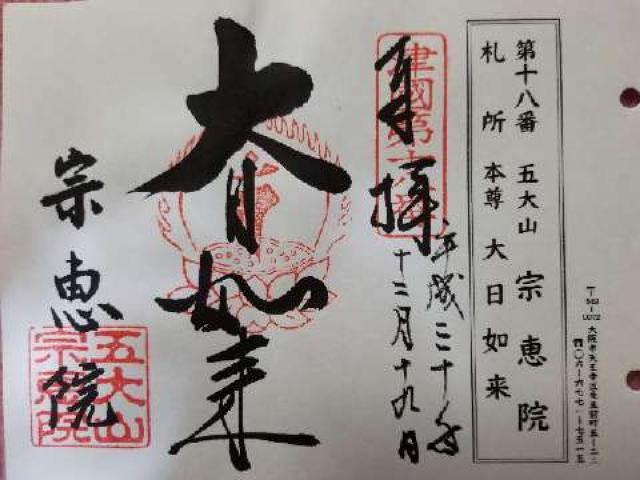 第十八番 五大山 宗恵院
札所本尊 大日如来
奉拝
平成三十年
十二月十九日
大日如来
宗恵院
五大山
宗恵院